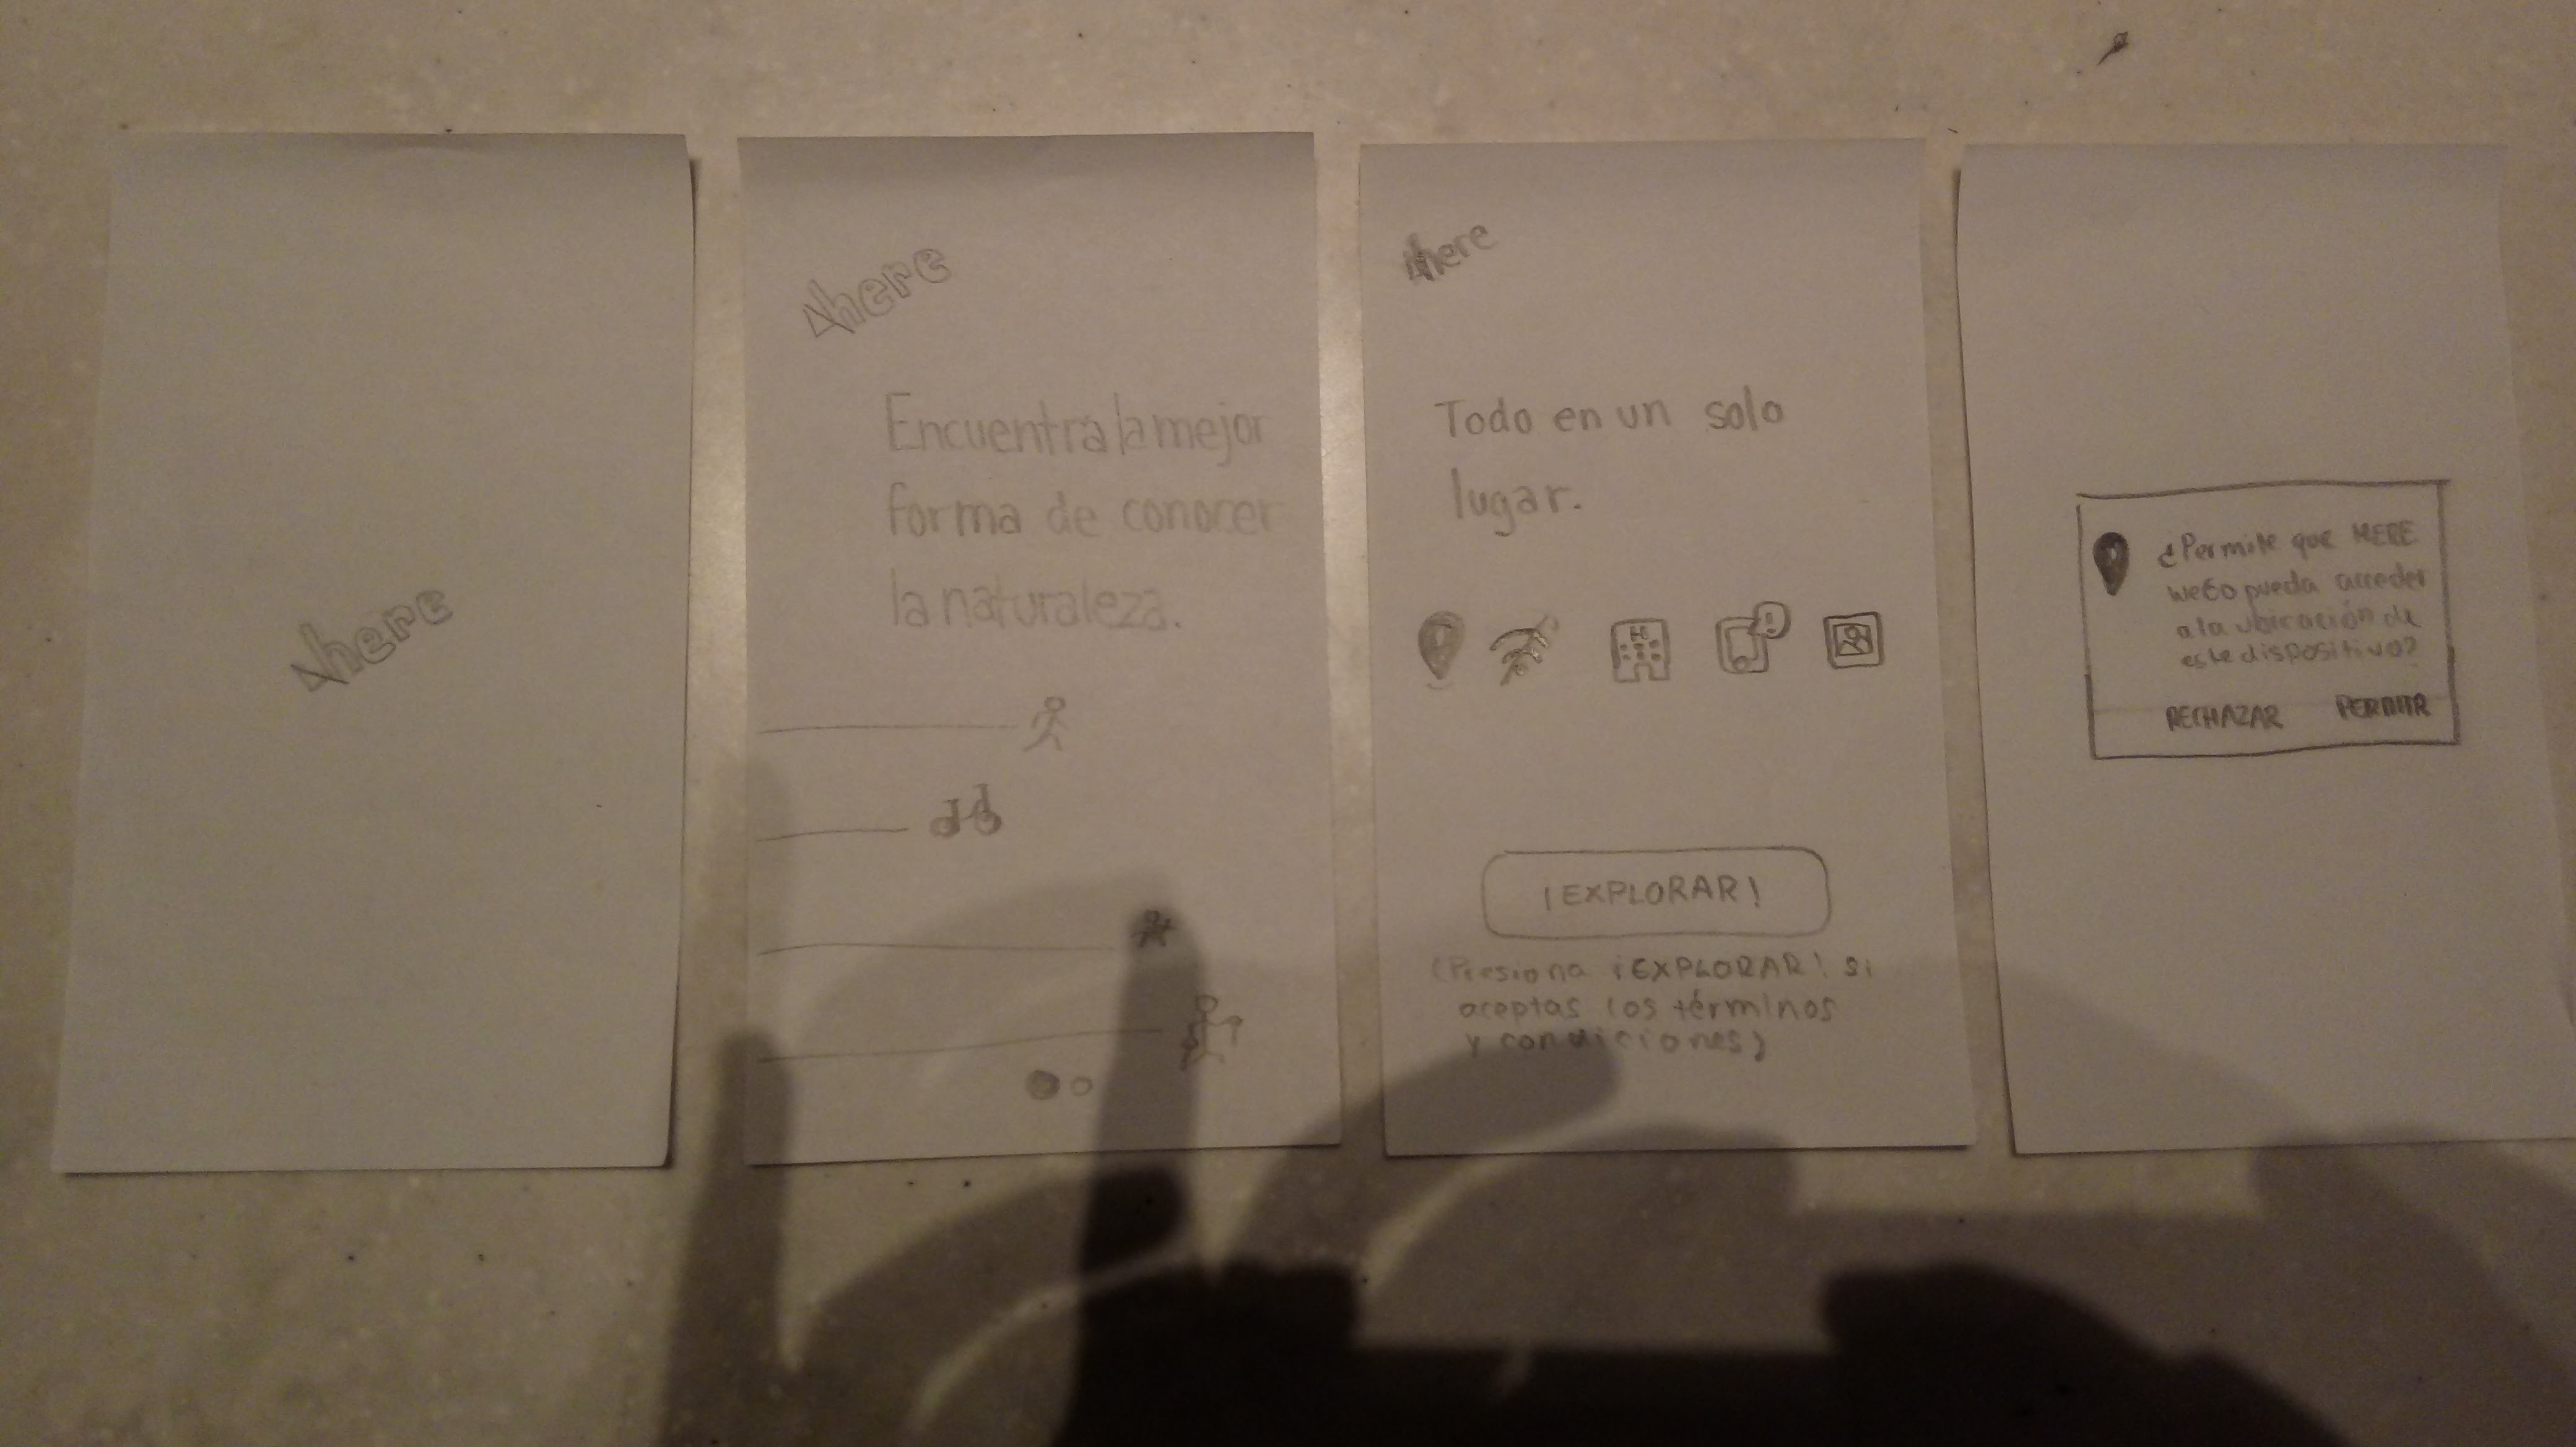 here
here
Encuentra la mejor
forma de conocer
la naturaleza.
here
Todo en un solo
lugar.
H
¡EXPLORAR!
(Presiona ¡EXPLORAR! si
aceptas los términos
y condiciones)
¿Permite que HERE
WeGo pueda acceder
a la ubicación de
este dispositivo?
RECHAZAR PERMITIR